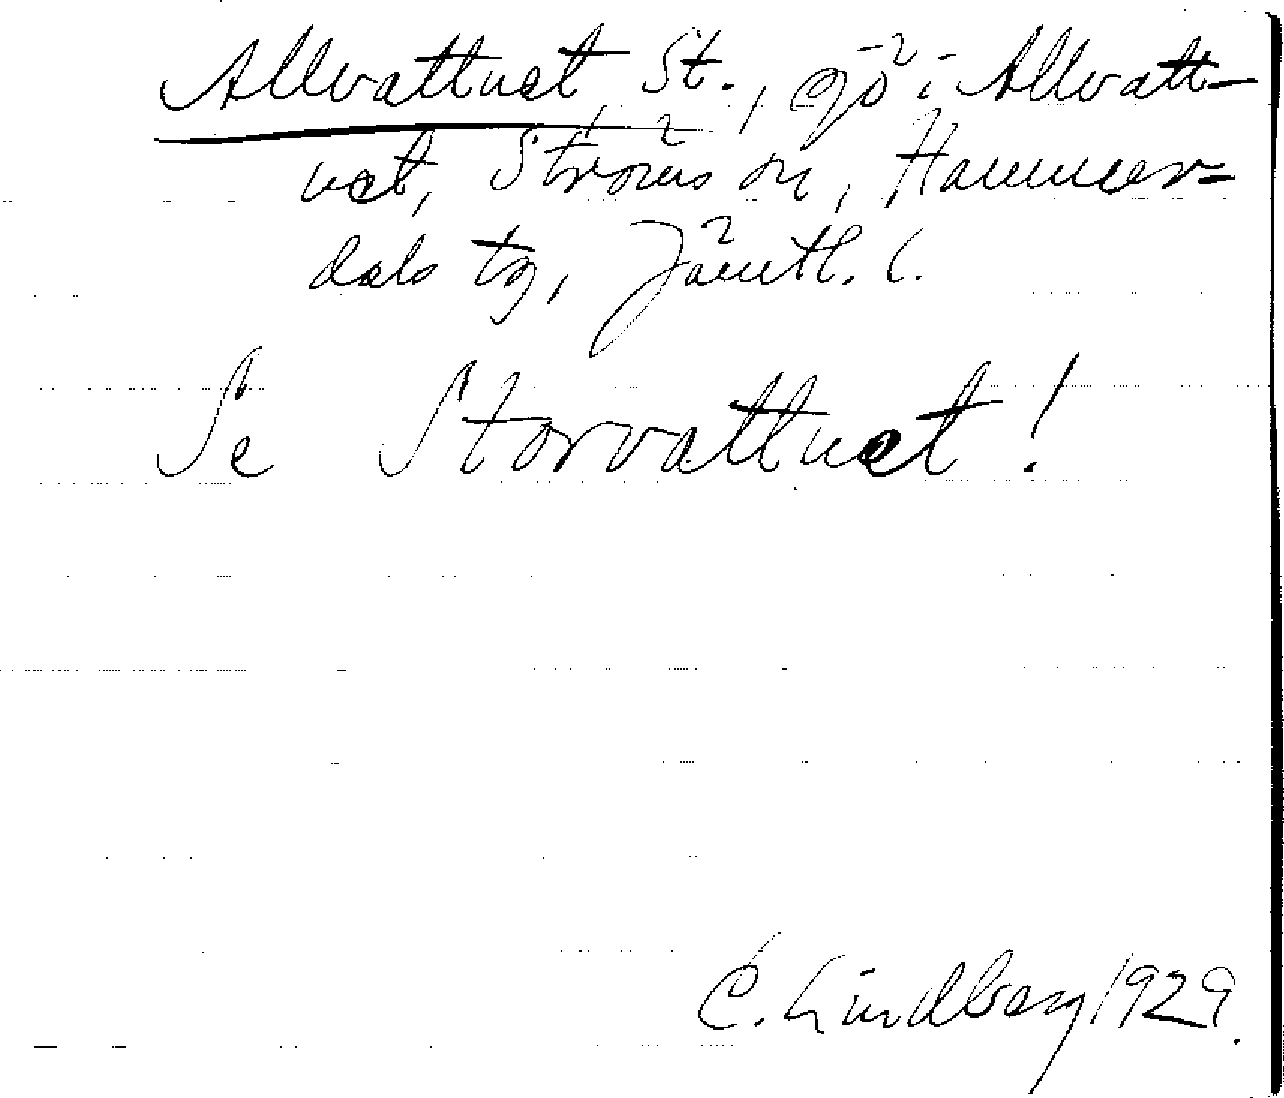 Allvattnet, St., sjö i Allvatt-
net, Ströms sn, Hammer-
dals tg, Jämtl. l.
Se Storvattnet!
C. Lindberg 1929.